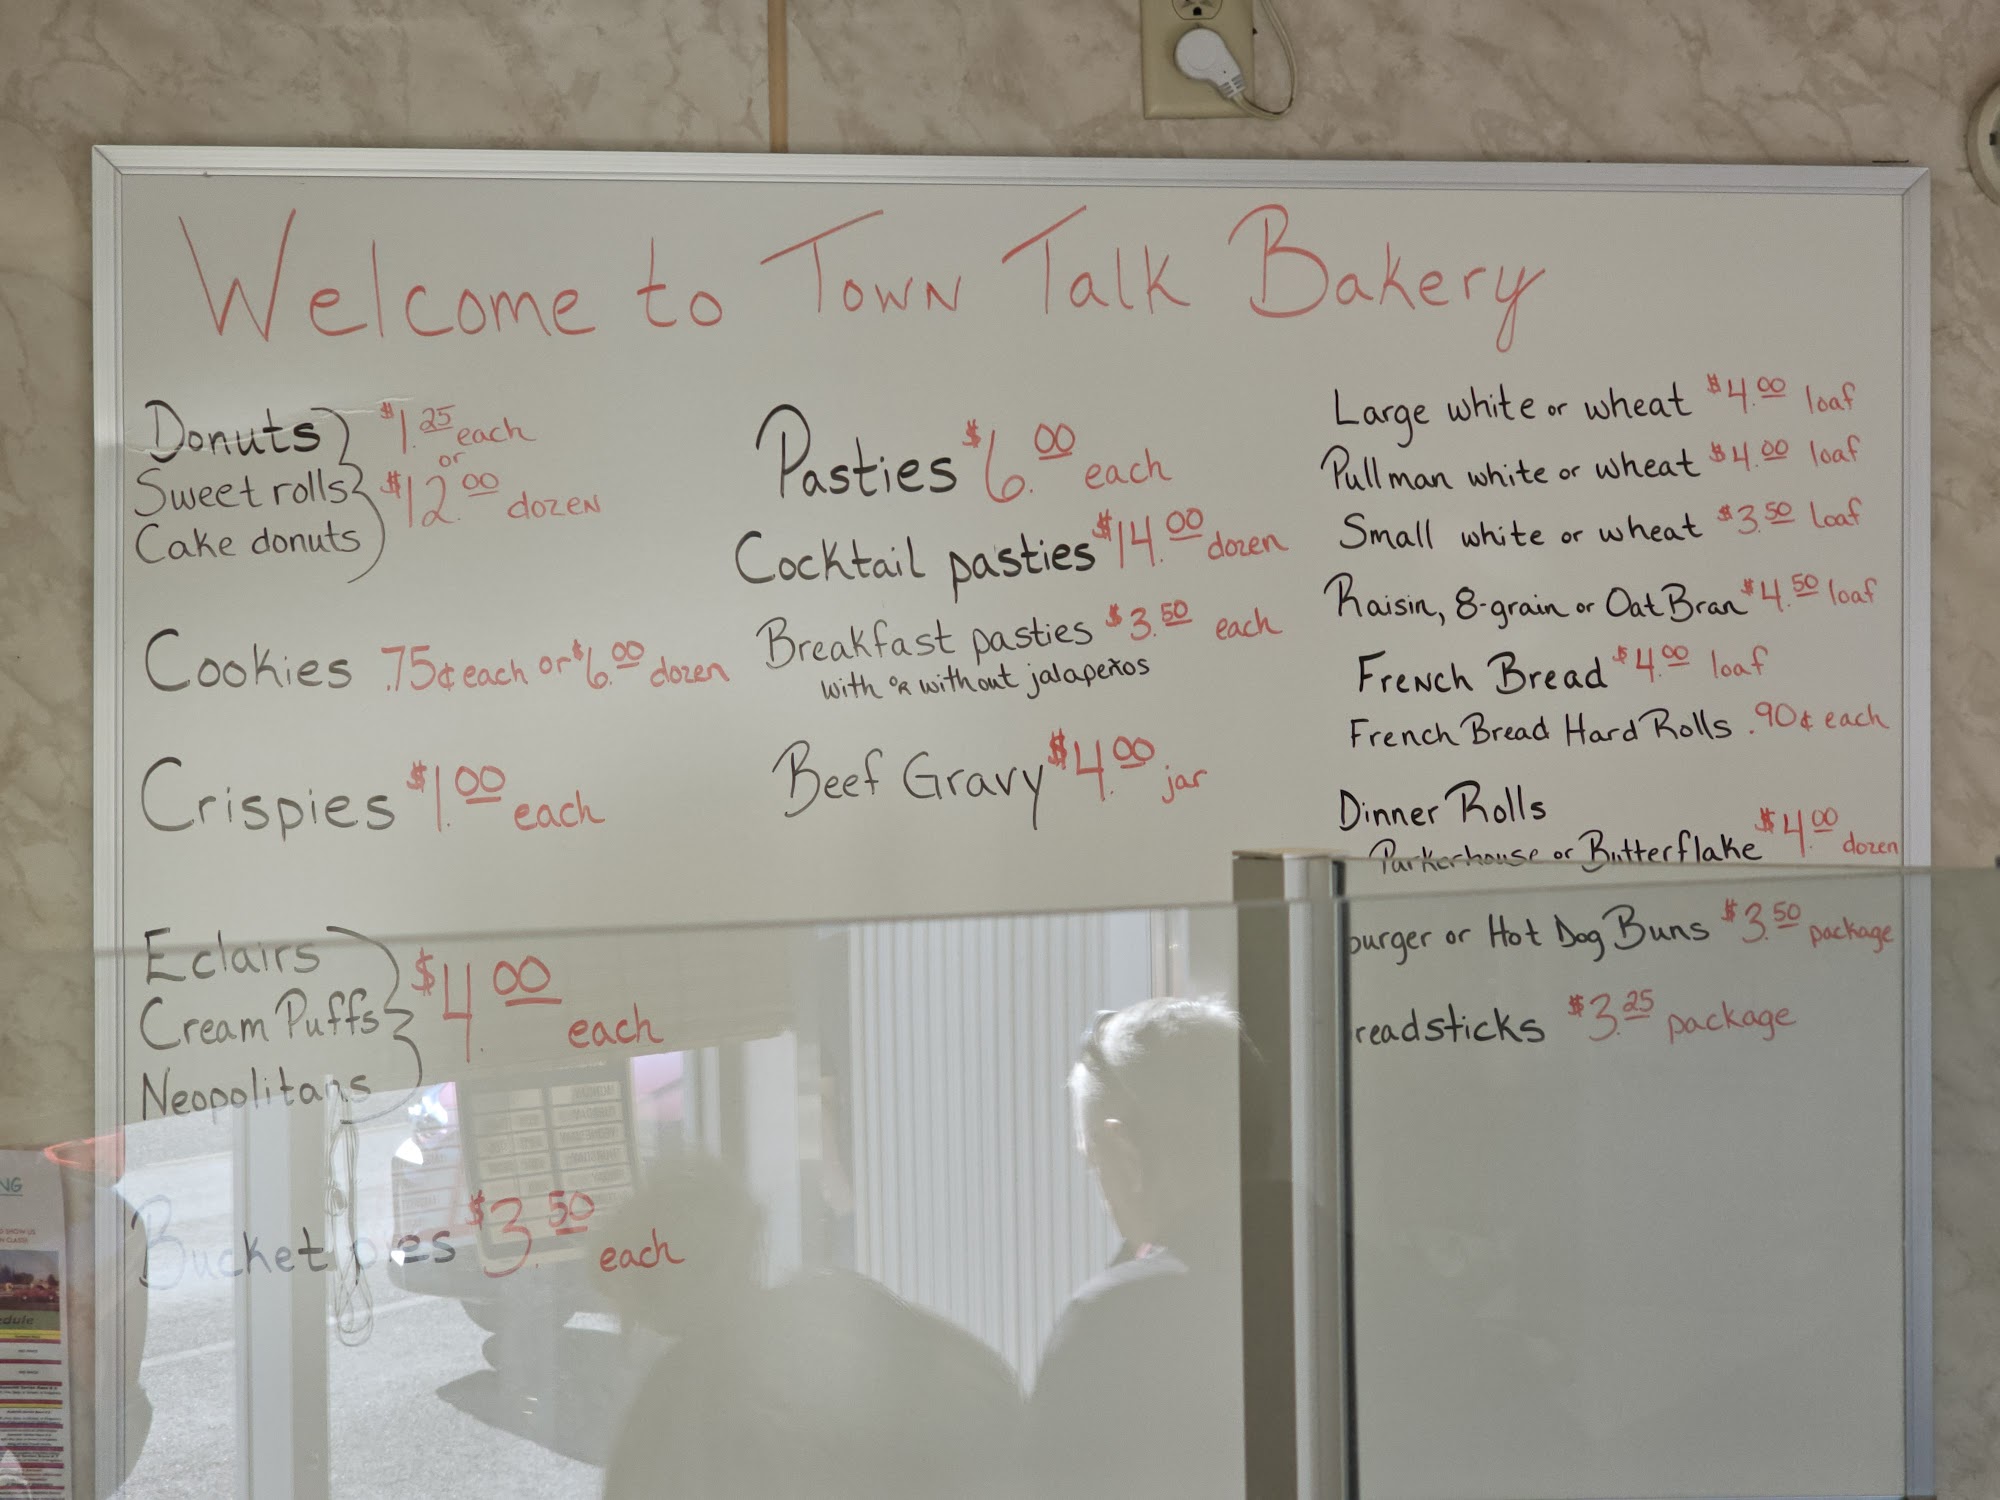 Welcome to Town Talk Bakery
Donuts $1.25 each
or
Sweet rolls $12.00 dozen
Cake donuts
Cookies .75¢ each or $6.00 dozen
Crispies $1.00 each
Eclairs
Cream Puffs $4.00 each
Neopolitans
Bucket pies $3.50 each
Pasties $6.00 each
Cocktail pasties $14.00 dozen
Breakfast pasties $3.50 each
with or without jalapeños
Beef Gravy $4.00 jar
Large white or wheat $4.00 loaf
Pullman white or wheat $4.00 loaf
Small white or wheat $3.50 loaf
Raisin, 8-grain or Oat Bran $4.50 loaf
French Bread $4.00 loaf
French Bread Hard Rolls .90¢ each
Dinner Rolls
Parkerhouse or Butterflake $4.00 dozen
burger or Hot Dog Buns $3.50 package
readsticks $3.25 package
NG
edule